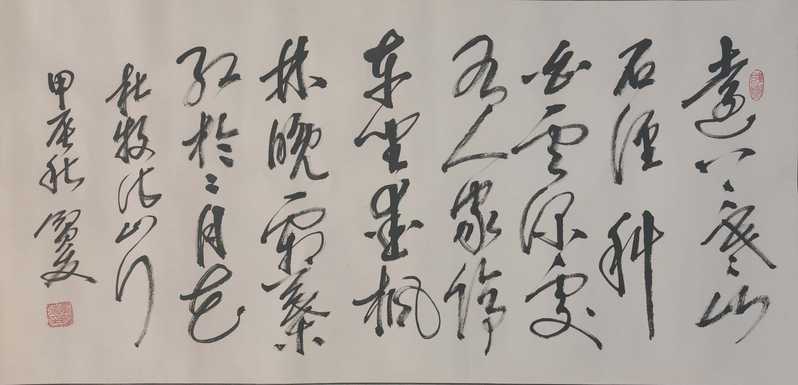 遠上寒山
石徑斜
白雲深處
有人家停
車坐愛楓
林晚霜葉
紅於二月花
杜牧诗山行
甲辰秋